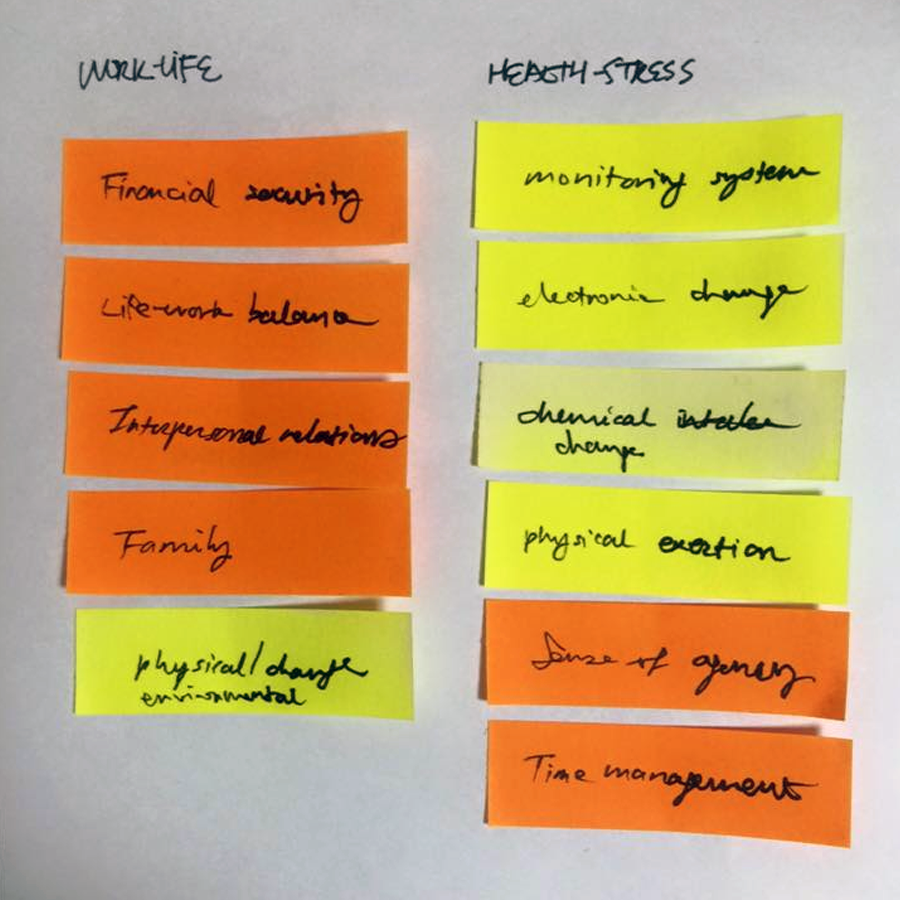 WORK-LIFE
Financial security
Life-work balance
Interpersonal relations
Family
physical/change
environmental
HEALTH-STRESS
monitoring system
electronic change
chemical intake
change
physical exertion
Sense of agency
Time management